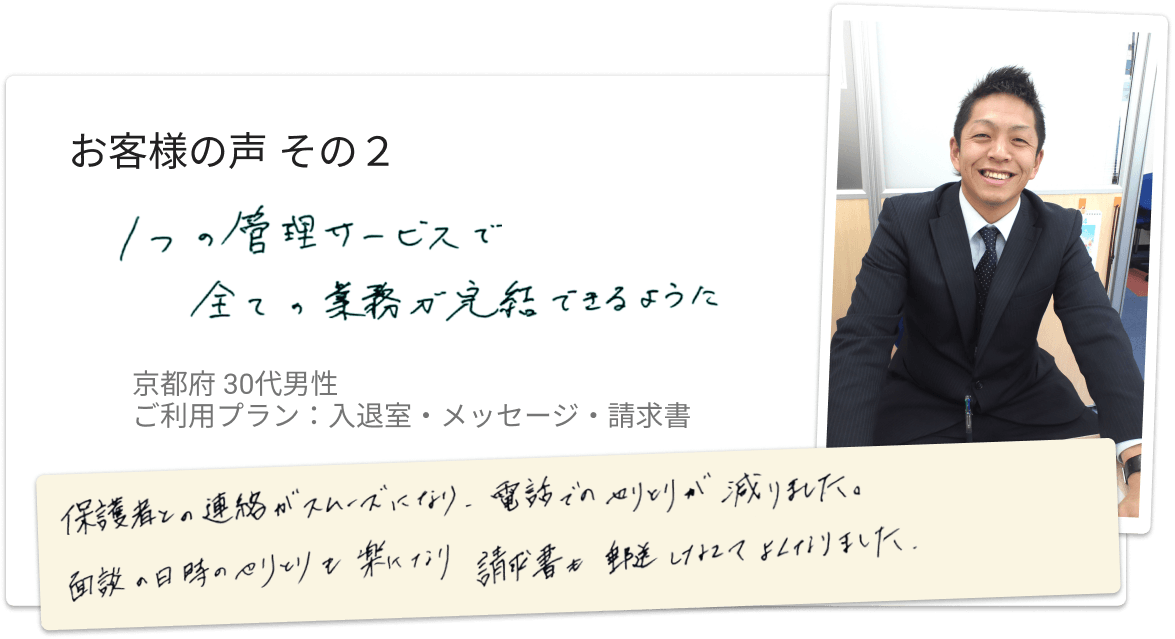 お客様の声 その２
1つの管理サービスで
全ての業務が完結できるように
京都府 30代男性
ご利用プラン：入退室・メッセージ・請求書
保護者との連絡がスムーズになり、電話でのやりとりが減りました。
面談の日時のやりとりも楽になり 請求書も郵送しなくてよくなりました。